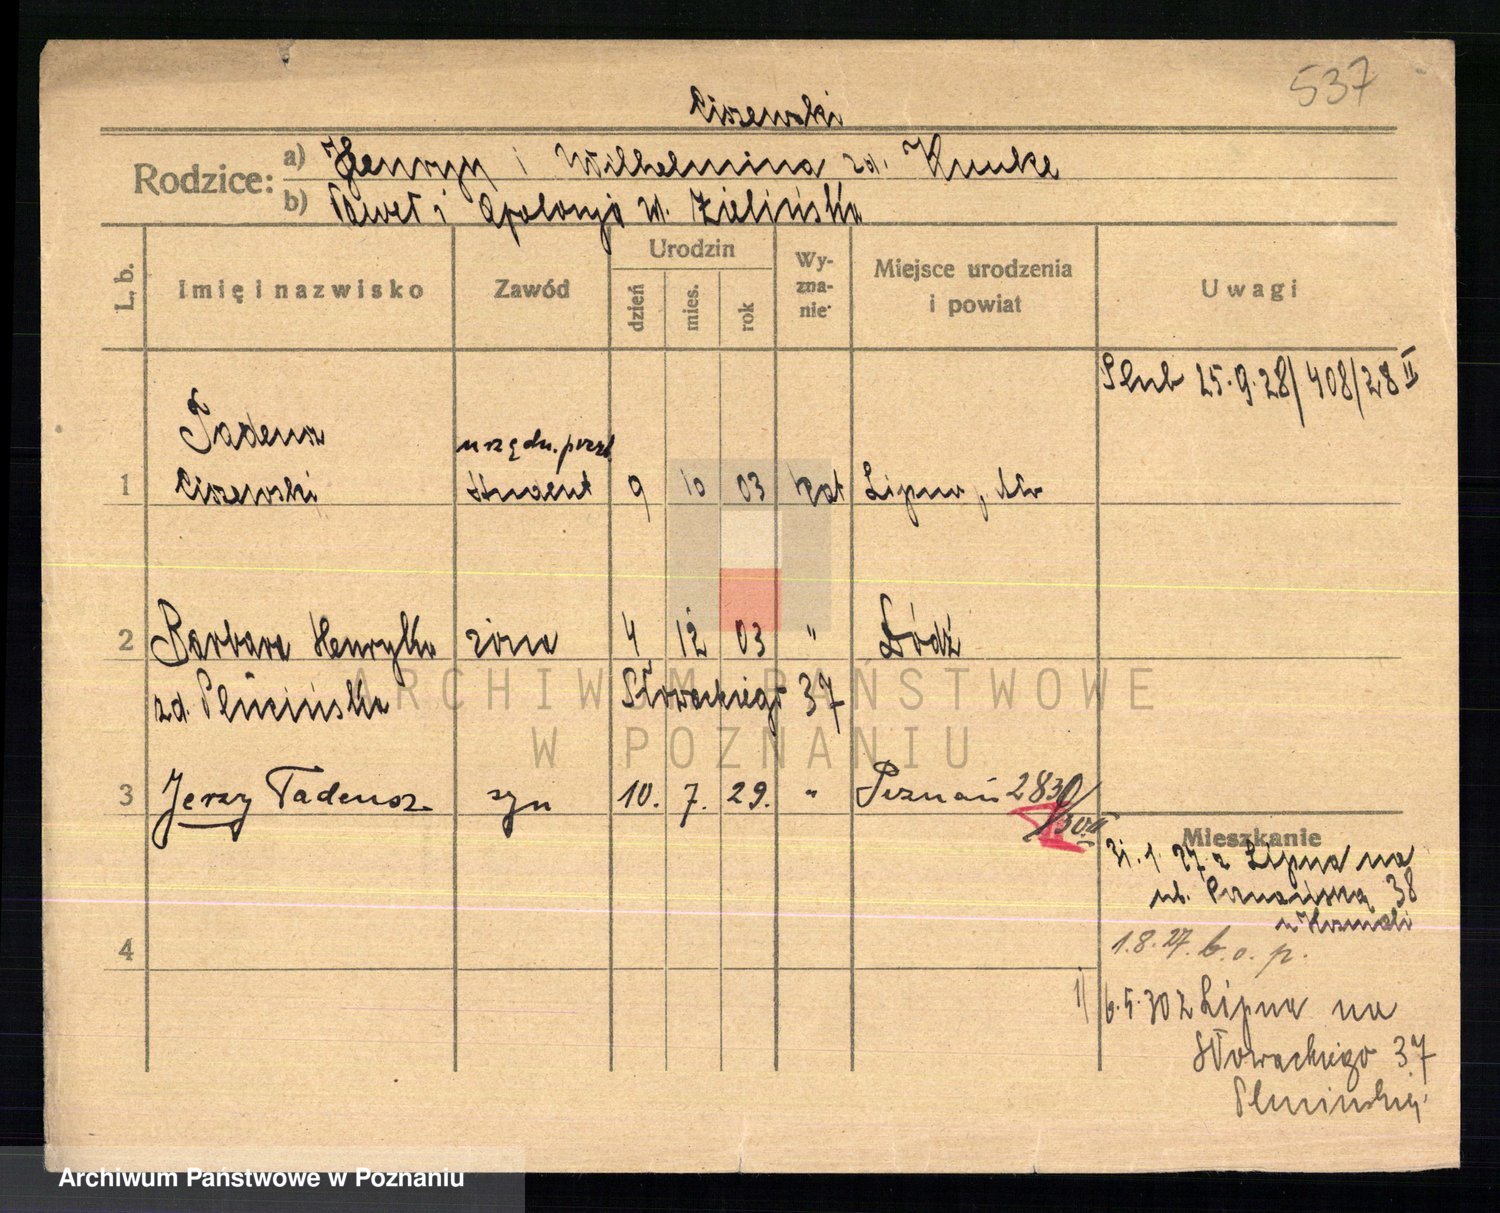 537
Ciszewski
Rodzice: a) Henryk i Wilhelmina zd. Kunke
b) Paweł i Apolonja zd. Zielińska
L. b. Imię i nazwisko Zawód Urodzin dzień mies. rok Wyznanie Miejsce urodzenia i powiat Uwagi
Ślub 25.9.28/408/28 II
Tadeusz urzędn. poczt.
1 Ciszewski student 9 10 03 kat Lipno,
2 Barbara Henryka żona 4 12 03 " Łódź
zd. Plucińska Słowackiego 37
3 Jerzy Tadeusz syn 10. 7. 29. " Poznań 2830/30 II
4
Mieszkanie
31.1.27 z Lipna na
ul. Poznańską 38
1.8.27. b. o. p.
1) 6.5.30 z Lipna na
Słowackiego 37
Plucińskiej
ARCHIWUM PAŃSTWOWE
W POZNANIU
Archiwum Państwowe w Poznaniu